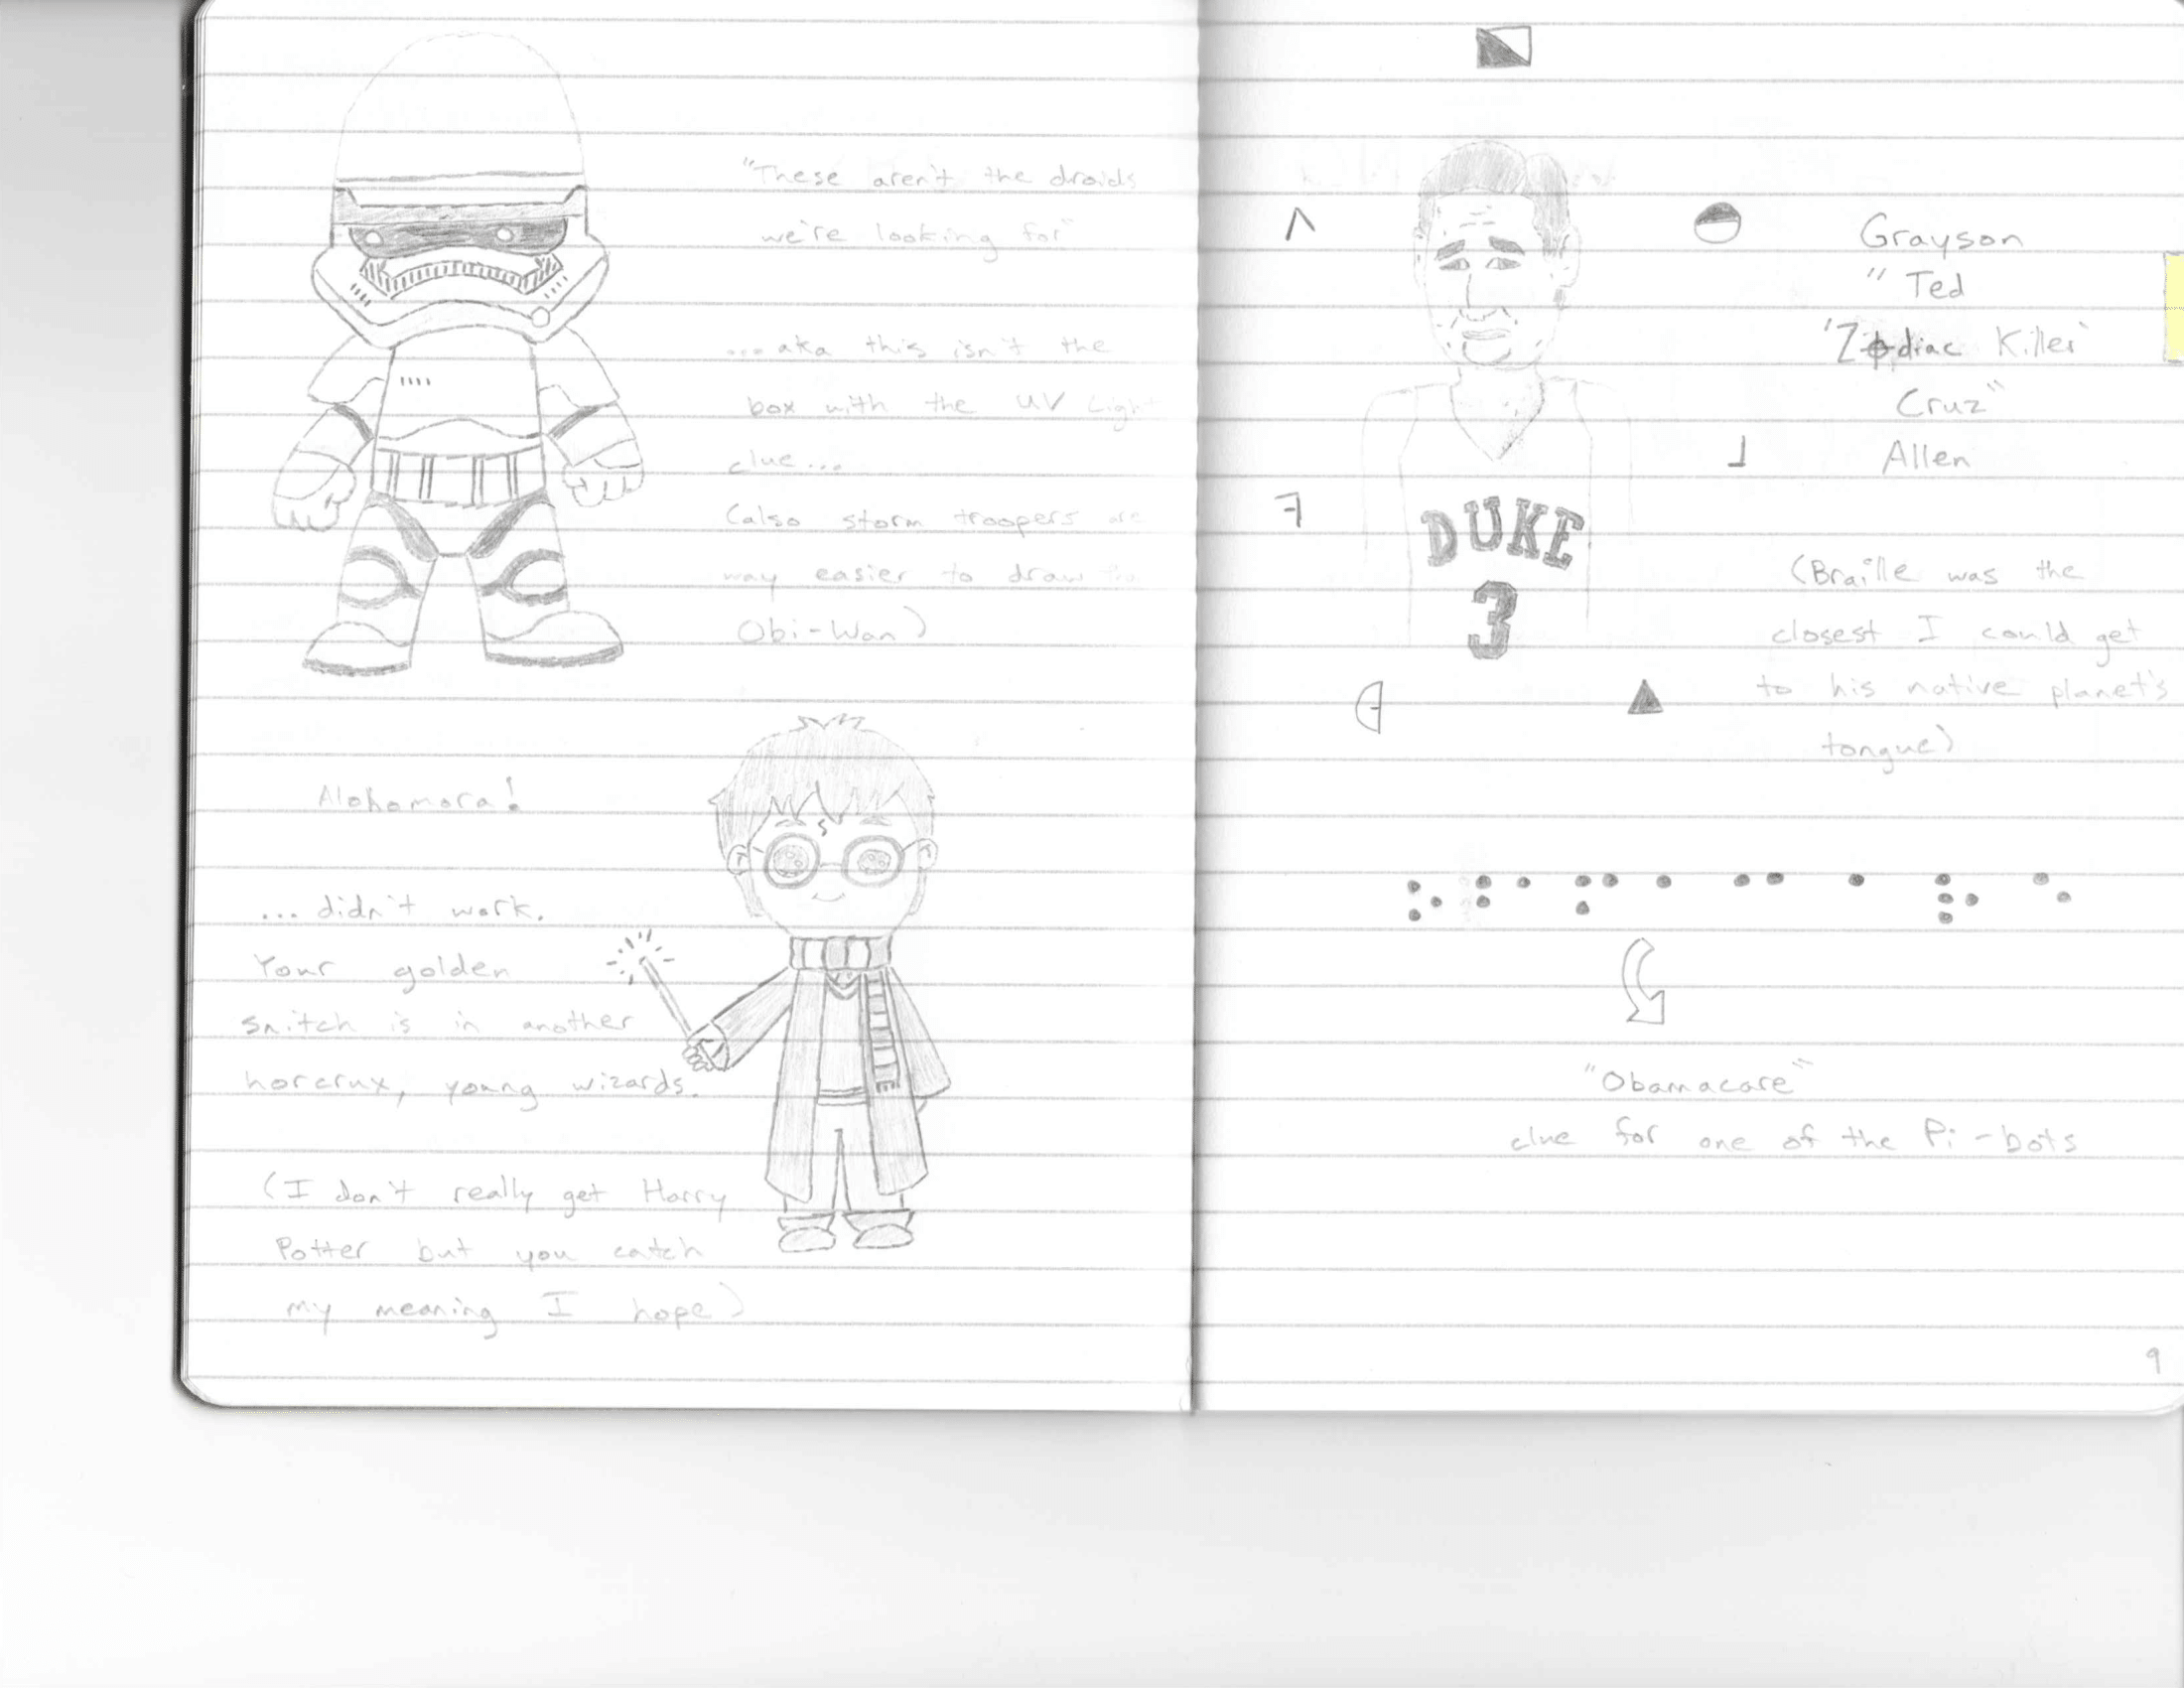 "These aren't the droids
we're looking for"
...aka this isn't the
box with the UV Light
clue...
(also storm troopers are
way easier to draw
Obi-Wan)
Alohomora!
... didn't work.
Your golden
snitch is in another
horcrux, young wizards.
(I don't really get Harry
Potter but you catch
my meaning I hope)
Grayson
"Ted
'Zodiac Killer'
Cruz"
Allen
DUKE
3
(Braille was the
closest I could get
to his native planet's
tongue)
⠕⠃⠁⠍⠁⠉⠁⠗⠑
"Obamacare"
clue for one of the Pi-bots
9